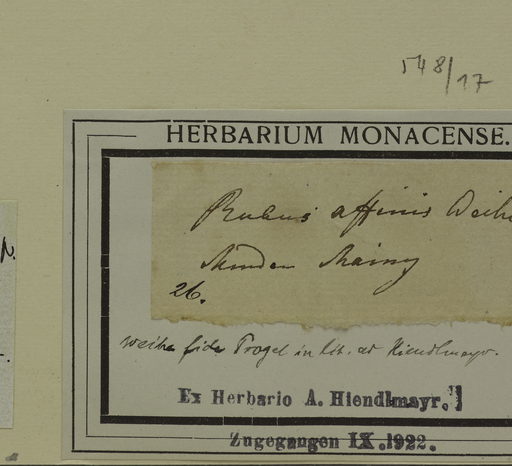 548/17
HERBARIUM MONACENSE.
Rubus affinis Weihe
Minden
26.
Weihe fide Progel in lit. ad Hiendlmayr.
Ex Herbario A. Hiendlmayr.
Zugegangen IX.1922.